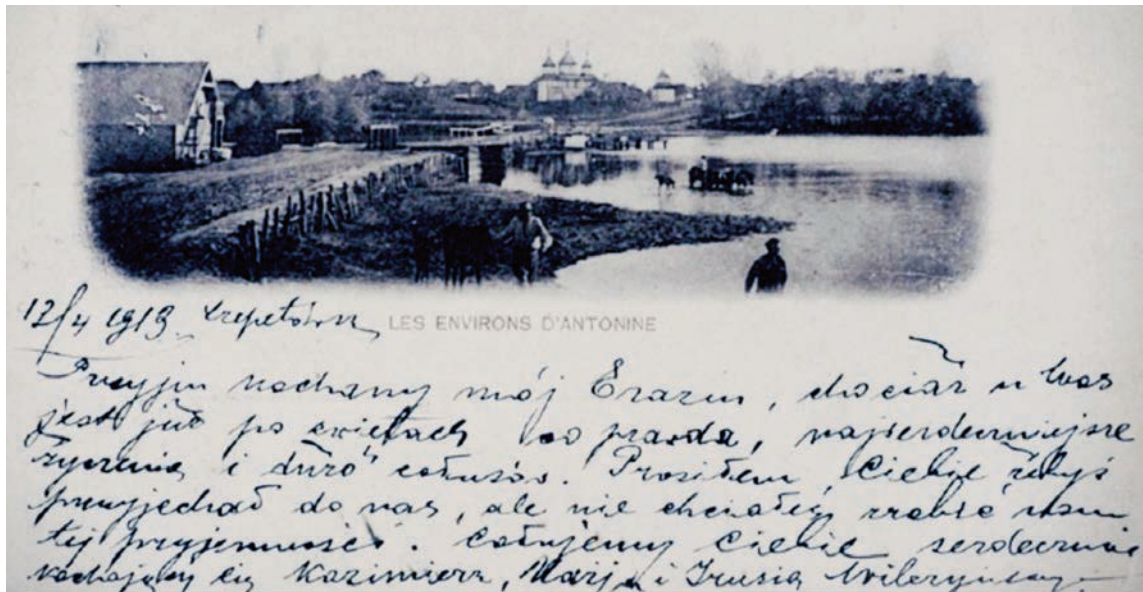 12/4 1913 Szepetówka
LES ENVIRONS D'ANTONINE
Przyjm kochany mój Erazm, chociaż u Was
jest już po świętach co prawda, najserdeczniejsze
życzenia i dużo całusów. Prosiłem Ciebie żebyś
przyjechał do nas, ale nie chciałeś zrobić nam
tej przyjemności. Całujemy Ciebie serdecznie
kochający Cię Kazimierz, Marja i Irusia